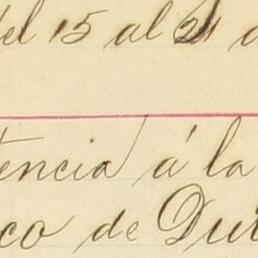 del 15 al 21 d
tencia á la
co de Dur